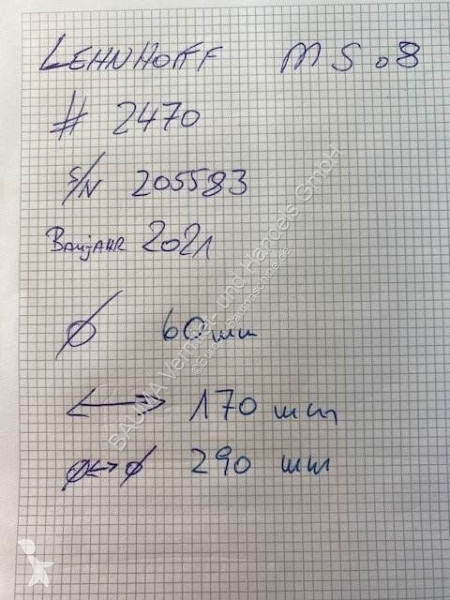 LEHNHOFF MS08
# 2470
S/N 205583
BAUJAHR 2021
Ø 60 mm
↔ 170 mm
Ø↔Ø 290 mm
BAUMA Vermiet- und Handels GmbH